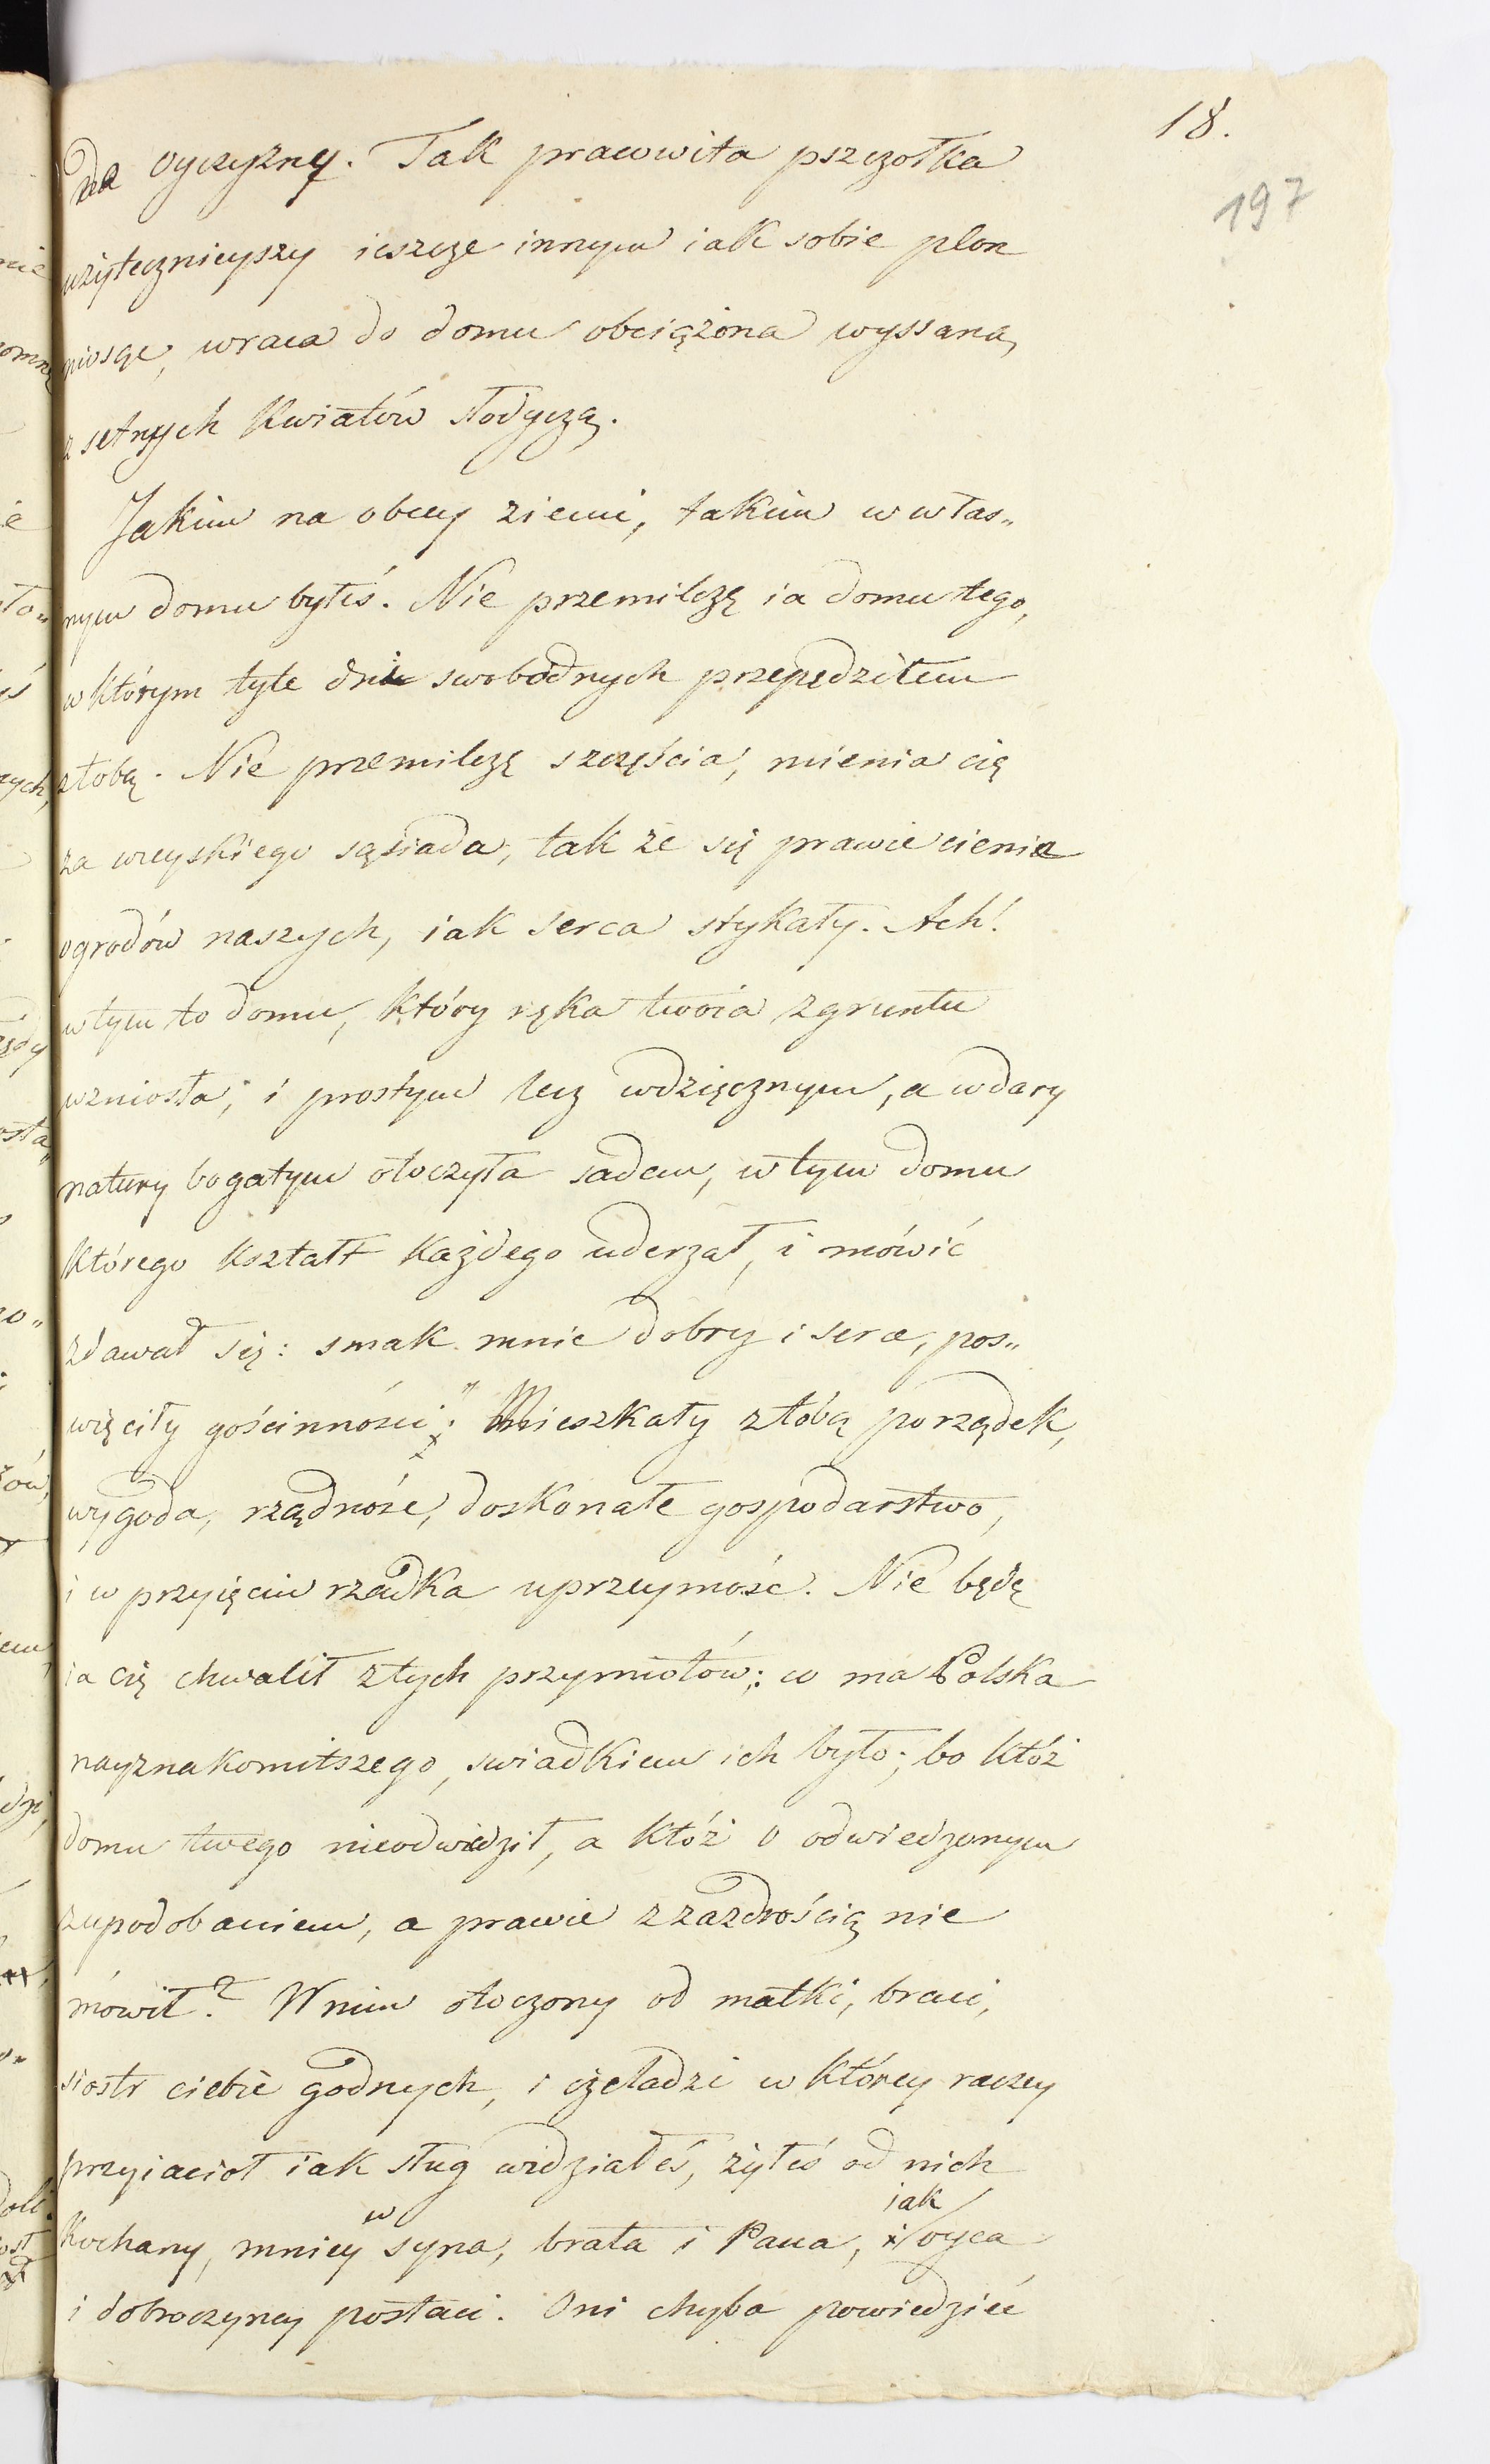 18.
197
na oyczyznę. Tak pracowita pszczołka
użytecznieyszy ieszcze innym iak sobie plon
niosąc, wraca do domu obciążona wyssaną,
z setnych kwiatów słodyczą.
Jakim na obcey ziemi, takim w włas„
nym domu byłeś. Nie przemilczę ia domu tego,
w którym tyle dni swobodnych przepędziłem
z tobą. Nie przemilczę szczęścia, mienia cię
za wieyskiego sąsiada, tak że się prawie cienie
ogrodów naszych, iak serca stykały. Ach!
w tym to domu, który ręka twoia z gruntu
wzniosła, i prostym lecz wdzięcznym, a w dary
natury bogatym otoczyła sadem, w tym domu
którego kształt każdego uderzał, i mówić
zdawał się: smak mnie dobry i serce, poś„
więciły gościnności:" Mieszkały z tobą porządek,
wygoda, rządność, doskonałe gospodarstwo,
i w przyięciu rzadka uprzeymość. Nie będę
ia cię chwalił z tych przymiotów; co ma Polska
nayznakomitszego, swiadkiem ich było; bo któż
domu twego nieodwiedził, a któż o odwiedzonym
z upodobaniem, a prawie z zazdrością nie
mówił? W nim otoczony od matki, braci,
siostr ciebie godnych, i czeladzi w którey raczey
przyiaciół iak sług widziałeś, żyłeś od nich
kochany, mniey w syna, brata i Pana, iak oyca
i dobroczyncy postaci. Oni chyba powiedzieć